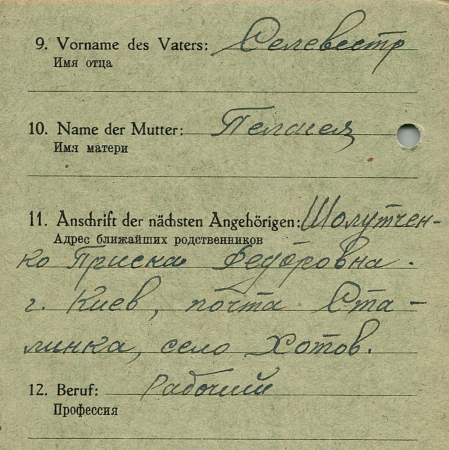 9. Vorname des Vaters: Селевестр
Имя отца
10. Name der Mutter: Пелагея
Имя матери
11. Anschrift der nächsten Angehörigen: Шолутчен-
Адрес ближайших родственников
ко Приска Федоровна.
г. Киев, почта Ста-
линка, село Хотов.
12. Beruf: Рабочий
Профессия